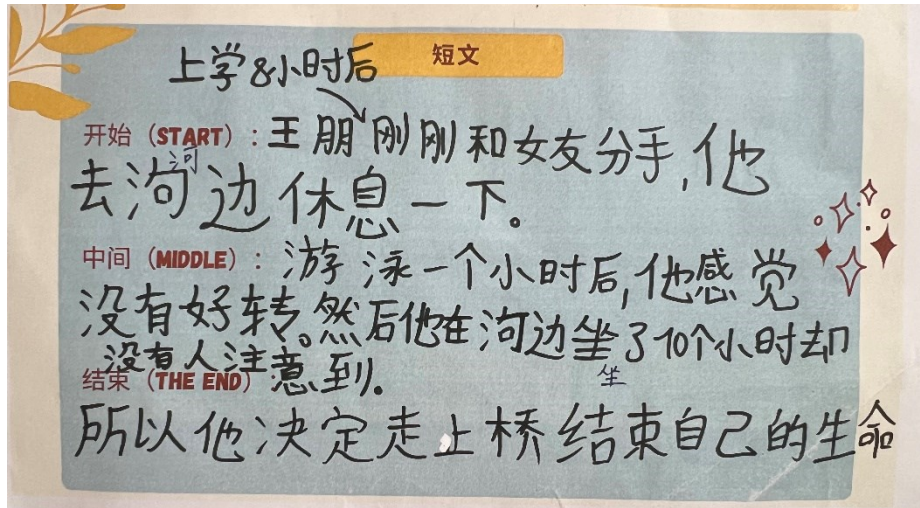 短文
上学8小时后
开始（START）：王朋刚刚和女友分手,他
河
去沟边休息一下。
中间（MIDDLE）：游泳一个小时后,他感觉
没有好转。然后他在河边坐了10个小时却
没有人注意到.
坐
结束（THE END）
所以他决定走上桥结束自己的生命